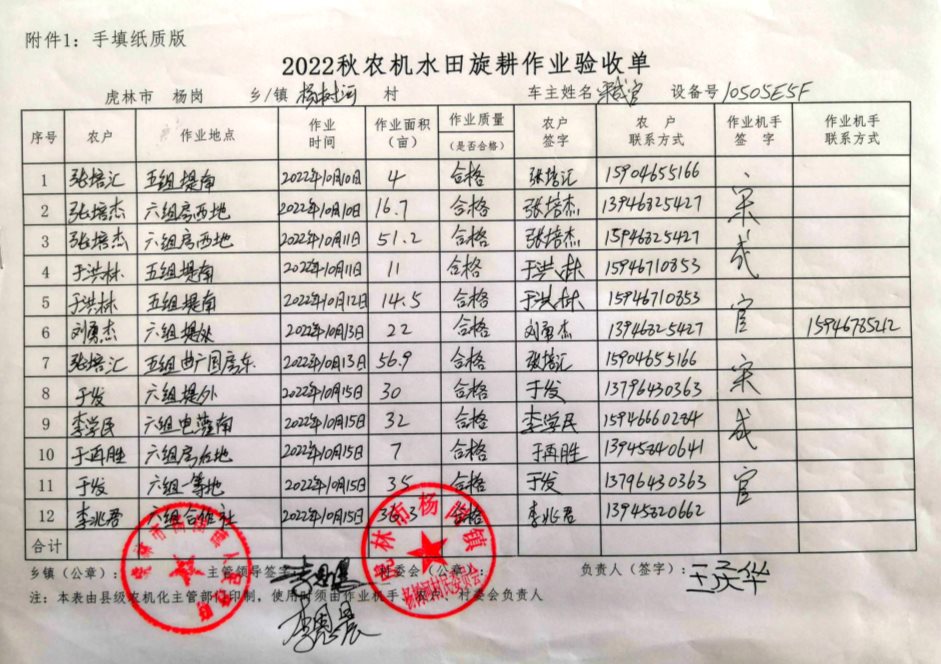 附件1：手填纸质版
2022秋农机水田旋耕作业验收单
虎林市 杨岗 乡/镇 杨树河 村 车主姓名 设备号10505E5F
序号 农户 作业地点 作业时间 作业面积（亩） 作业质量（是否合格） 农户签字 农户联系方式 作业机手签字 作业机手联系方式
1 张培汇 五组堤南 2022年10月10日 4 合格 张培汇 15904655166
2 张培杰 六组房西地 2022年10月10日 16.7 合格 张培杰 13946825427 宋
3 张培杰 六组房西地 2022年10月11日 51.2 合格 张培杰 15946825427
4 于洪林 五组堤南 2022年10月11日 11 合格 于洪林 15946710853 成
5 于洪林 五组堤南 2022年10月12日 14.5 合格 于洪林 15946710853 官
6 刘勇杰 六组堤 2022年10月13日 22 合格 刘勇杰 13946825427 15946785212
7 张培汇 五组曲广国房东 2022年10月13日 56.9 合格 张培汇 15904655166 宋
8 于发 六组堤外 2022年10月15日 30 合格 于发 13796430363
9 李学民 六组电灌南 2022年10月15日 32 合格 李学民 15946660284 成
10 于再胜 六组房 地 2022年10月15日 7 合格 于再胜 13945840641
11 于发 六组一等地 2022年10月15日 35 合格 于发 13796430363 官
12 李兆君 六组合作社 2022年10月15日 36.3 合格 李兆君 13945820662
合计
乡镇（公章）： 主管领导签字 村委会（公章）： 负责人（签字）：王庆华
注：本表由县级农机化主管部门印制，使用时须由作业机手、农户、村委会负责人